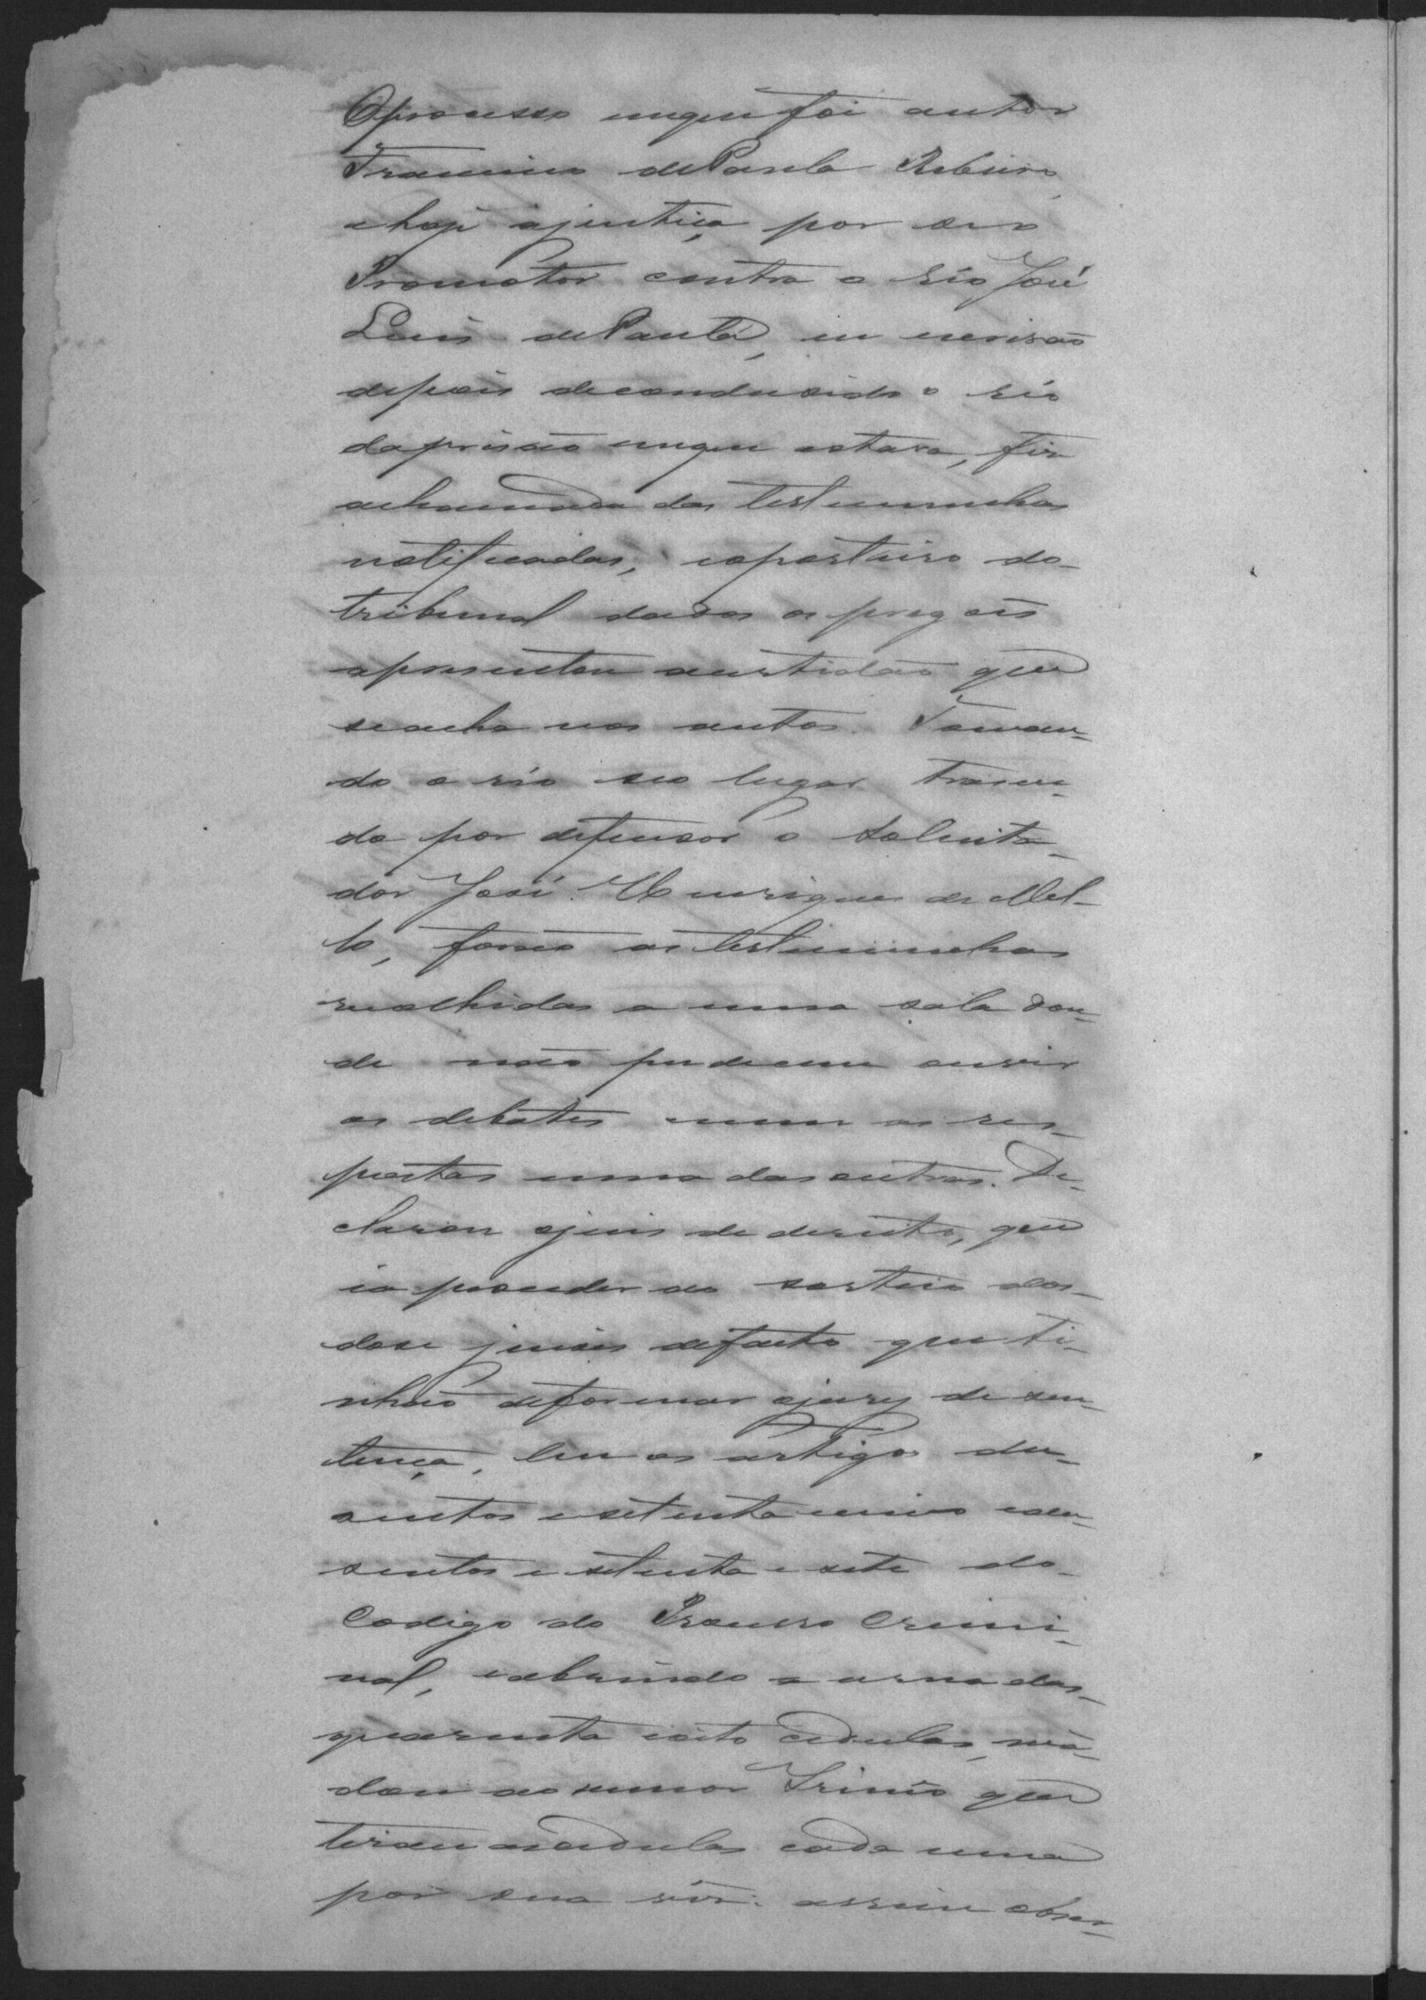 O processo em que foi autor
Francisco de Paula Ribeiro,
e hoje a justiça por seu
Promotor contra o réo José
Luis de Paula, e
depois de condusido o réo
da prisão em que estava, fes
a chamada das testemunhas
notificadas, e o porteiro do
tribunal dados os pregoẽs
apresentou a certidão que
se acha nos autos. Toman-
do o réo seo lugar trasen-
do por defensor o Solicita-
dor José Henriques de Mel-
lo, forão as testemunhas
recolhidas a uma sala don-
de não podecem ouvir
os debates nem as res-
postas uma das outras. De-
clarou o juis de direito, que
ia proceder ao sorteio dos
dose juises de facto que ti-
nhão de formar o jury de sen-
tença, leu os artigos du-
sentos e setenta e cinco e du-
sentos e setenta e sete do
Codigo do Processo Crimi-
nal, e abrindo a urna das
quarenta e oito cedulas, mã-
dou ao menor Irinêo que
tirasse as cedulas cada uma
por sua vês: assim obser-